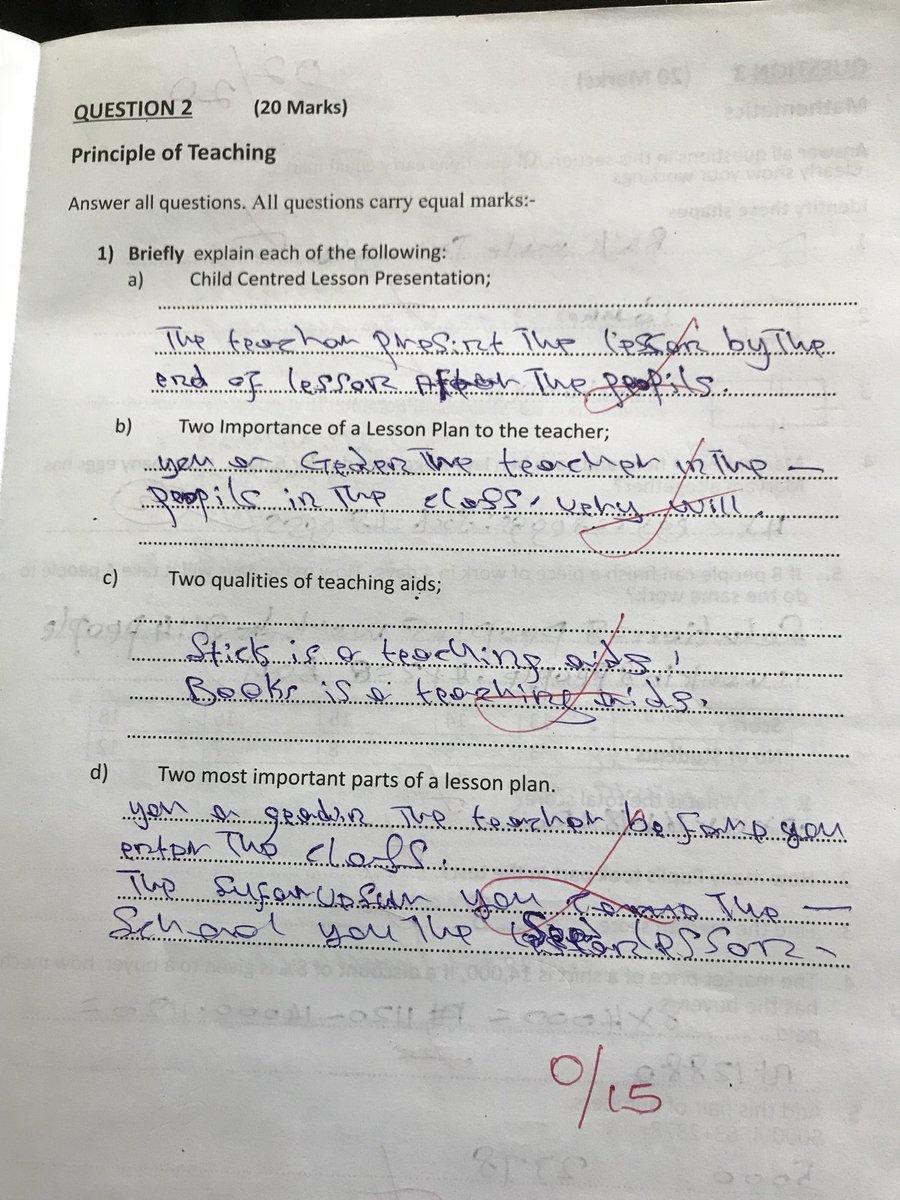 QUESTION 2 (20 Marks)
Principle of Teaching
Answer all questions. All questions carry equal marks:-
1) Briefly explain each of the following:
a) Child Centred Lesson Presentation;
The teachar present The lesson by The
end of lesson After The peopils.
b) Two Importance of a Lesson Plan to the teacher;
you or The teacher in The —
peopils in The class, very will.
c) Two qualities of teaching aids;
Stick is a teaching aids,
Books is a teaching aids.
d) Two most important parts of a lesson plan.
you The teacher before you
enter The class.
The you The —
School you The lesson
0/15